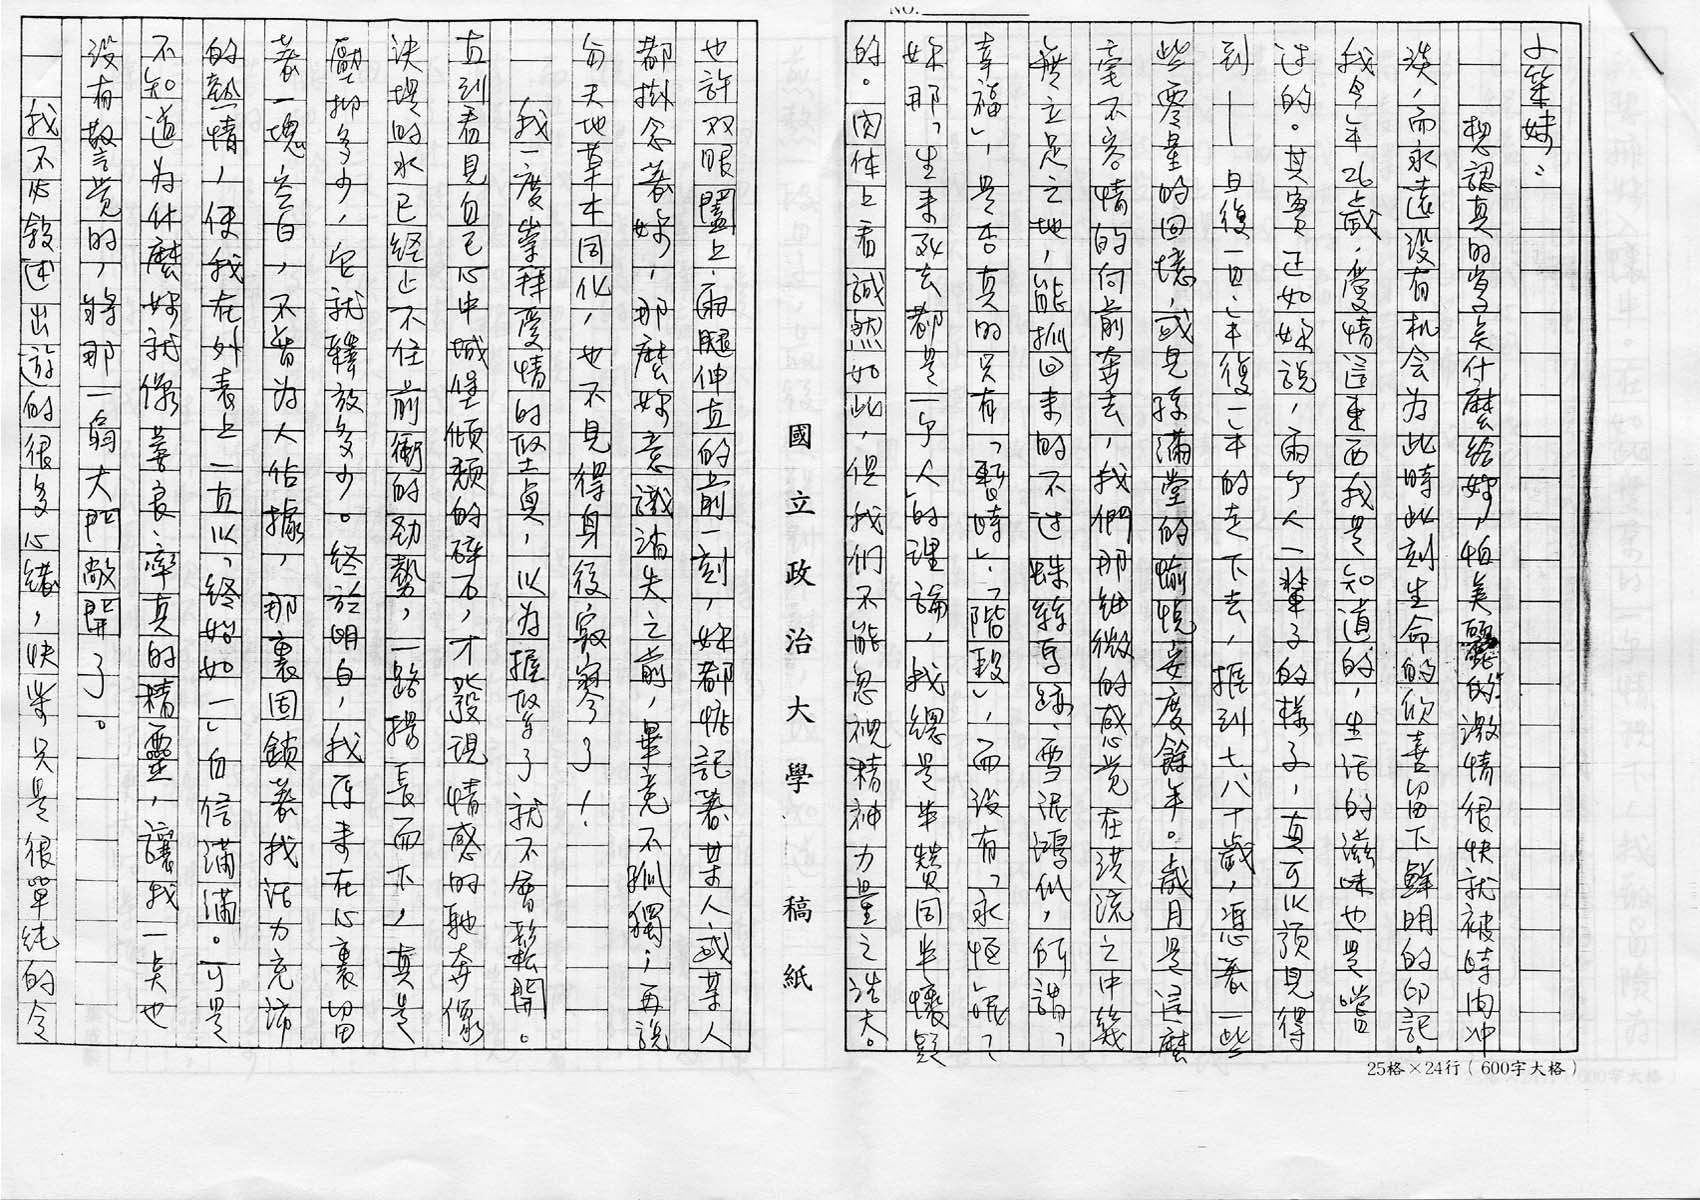 NO.
小築妹：
想認真的寫点什麼給妳，怕美麗的激情很快就被時间冲
淡，而永遠没有机会为此時此刻生命的欣喜留下鮮明的印記。
我今年26歲，愛情這東西我是知道的，生活的滋味也是嚐
过的。其實正如妳說，兩个人一輩子的樣子，真可以預見得
到——日復一日、年復一年的走下去，捱到七八十歲，憑着一些
些零星的回憶，或見孫滿堂的愉悅安度餘年。歲月是這麼
毫不容情的向前奔去，我們那細微的感觉在洪流之中幾
無立足之地，能抓回来的不过蛛絲马跡、雪泥鴻爪，所謂「
幸福」，是否真的只有「暫時」、「階段」，而没有「永恒」呢？
妳那「生来死去都是一个人」的理論，我總是半贊同半懷疑
的。肉体上看誠然如此，但我们不能忽視精神力量之浩大。
國立政治大學 稿紙
25格×24行（600字大格）
也許双眼闔上、兩腿伸直的前一刻，妳都惦記著某人或某人
都掛念著妳，那麼妳意識消失之前，畢竟不孤獨；再說
与天地草木同化，也不見得身後寂寞了！
我一度崇拜愛情的堅貞，以为握緊了就不會鬆開。
直到看見自己心中城堡傾頹的碎石，才發現情感的馳奔像
決堤的水已经止不住前衝的劲勢，一路撈長而下，真是
壓抑多少，它就釋放多少。終於明白，我原来在心裏留
著一塊空白，不曾为人佔據，那裏固鎖著我活力充沛
的熱情，使我在外表上一直以「終始如一」自信滿滿。可是
不知道为什麼妳就像善良率真的精靈，讓我一点也
没有警觉的，將那一扇大門敞開了。
我不必敍述出遊的很多心緒，快樂只是很單純的令